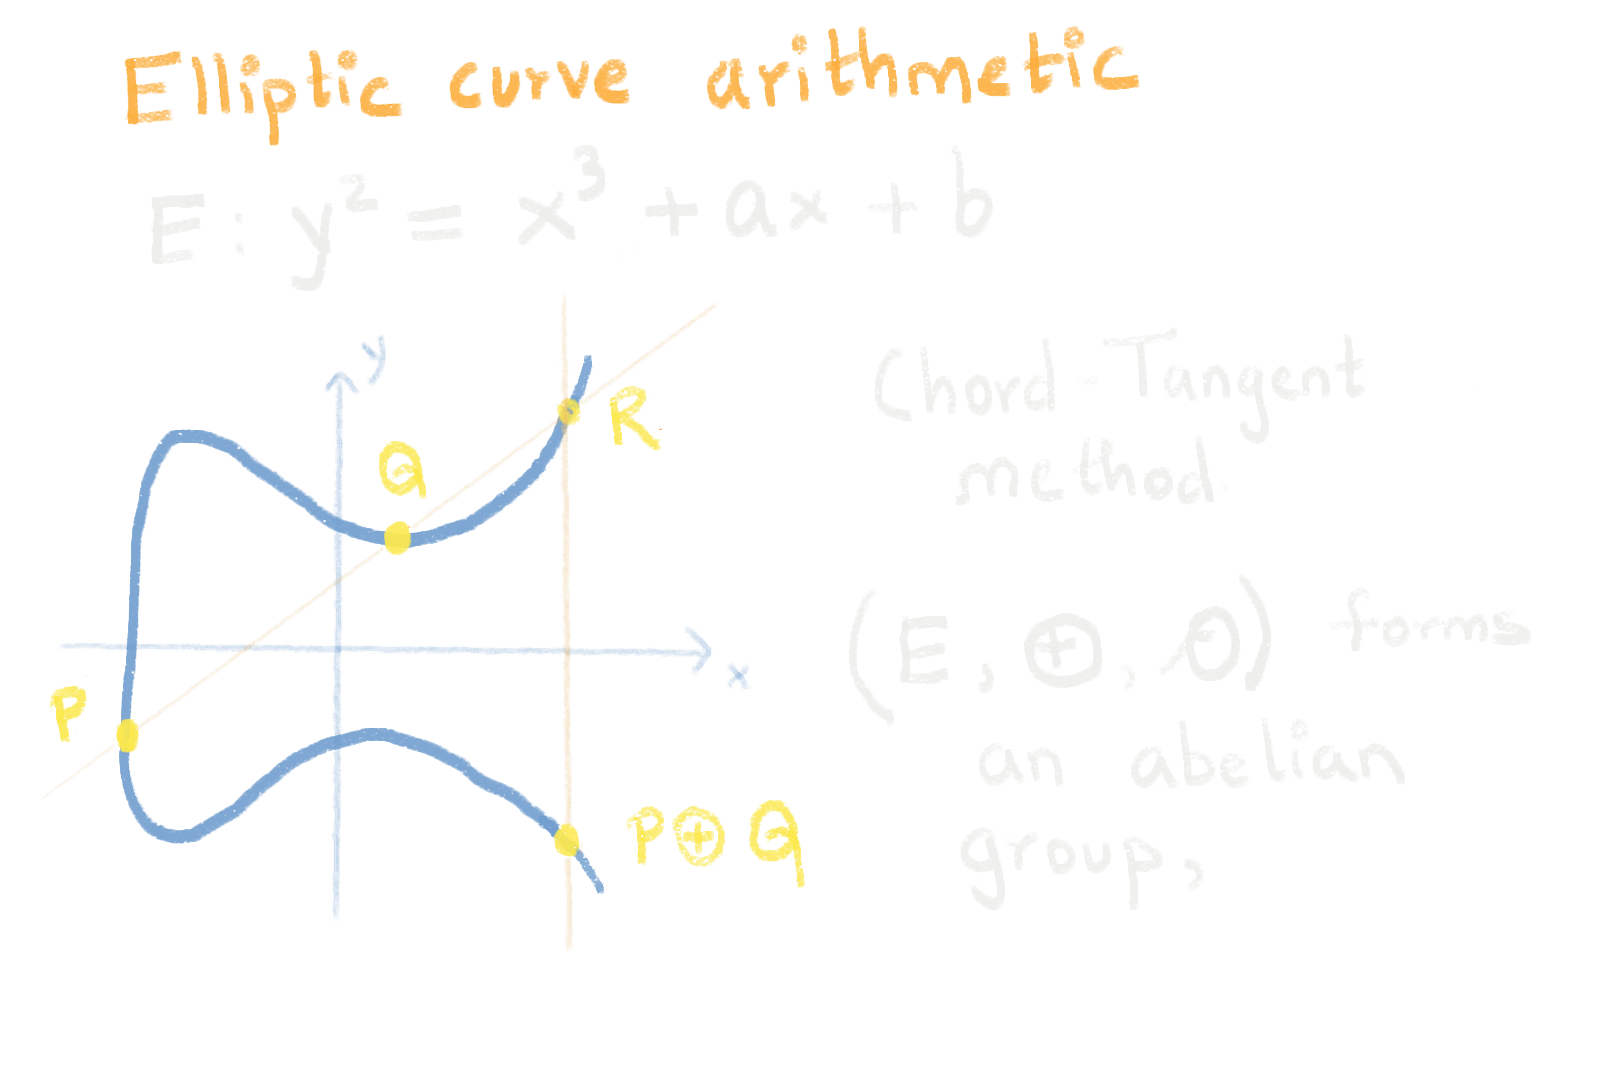 Elliptic curve arithmetic
E: y² = x³ + ax + b
y
Q
R
x
P
P⊕Q
Chord-Tangent
method
(E, ⊕, O) forms
an abelian
group,